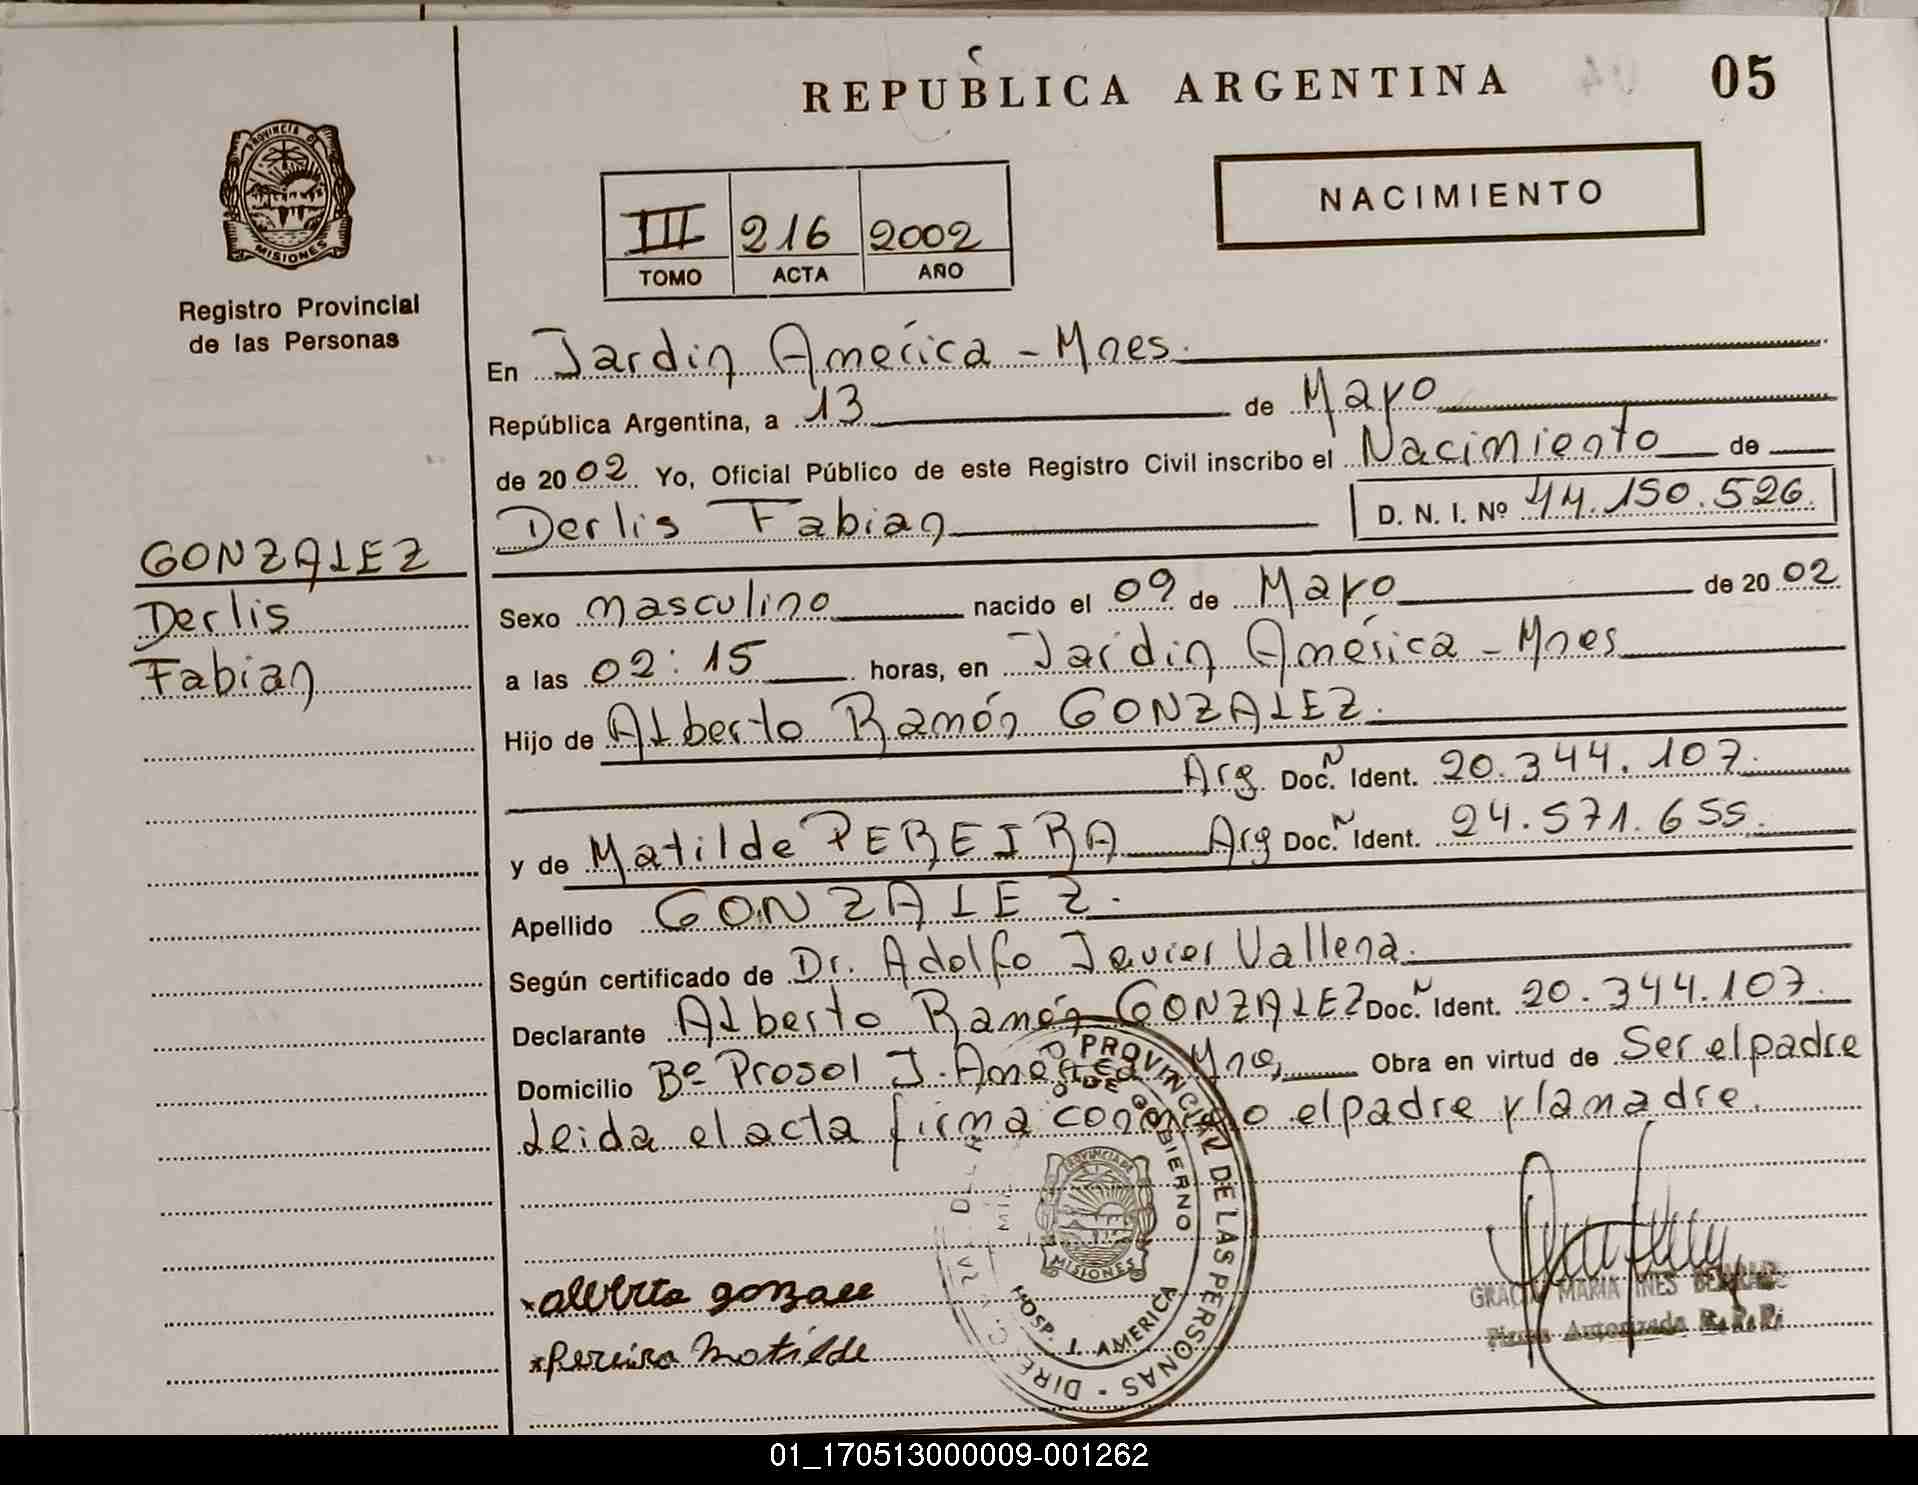 REPUBLICA ARGENTINA 05
PROVINCIA DE MISIONES
Registro Provincial
de las Personas
NACIMIENTO
III 216 2002
TOMO ACTA AÑO
En Jardin América - Mnes.
República Argentina, a 13 de Mayo
de 2002 Yo, Oficial Público de este Registro Civil inscribo el Nacimiento de
Derlis Fabian D. N. I. Nº 44.150.526.
GONZALEZ
Derlis
Fabian
Sexo masculino nacido el 09 de Mayo de 2002
a las 02:15 horas, en Jardin América - Mnes
Hijo de Alberto Ramón GONZALEZ.
Arg. Doc. N Ident. 20.344.107.
y de Matilde PEREIRA Arg Doc. N Ident. 24.571.655.
Apellido GONZALEZ.
Según certificado de Dr. Adolfo Javier Vallena.
Declarante Alberto Ramón GONZALEZ Doc. N Ident. 20.344.107.
Domicilio Bº Prosol J. América Obra en virtud de Ser el padre
Leida el acta firma conmigo el padre y la madre.
PROVINCIAL DE LAS PERSONAS
GOBIERNO
MISIONES
HOSP. J. AMERICA
alberto gonzalez
Pereira Matilde
MARIA INES
Firma Autorizada
01_170513000009-001262